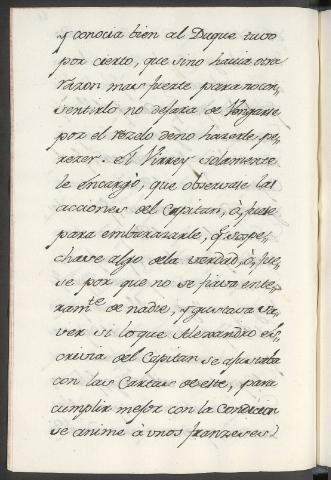 y conocia bien al Duque tuvo
por cierto, que sino hauia otra
razon mas fuerte para no con-
sentirlo no dejara de Vengarse
por el rezelo de no hazerle pe-
rezer. el Virrey solamente
le encargò, que observase las
acciones del Capitan, ò, fuese
para embarazarle, q̃ sospe-
chase algo dela verdad, ò, fue-
se por que no se fiava ente-
ram.te de nadie, y gustava sa-
ver si loque Alexandro es-
crivia del Capitan se ajustaba
con las Cartas de este, para
cumplir mejor con la Comicion
se anime à unos franzeses